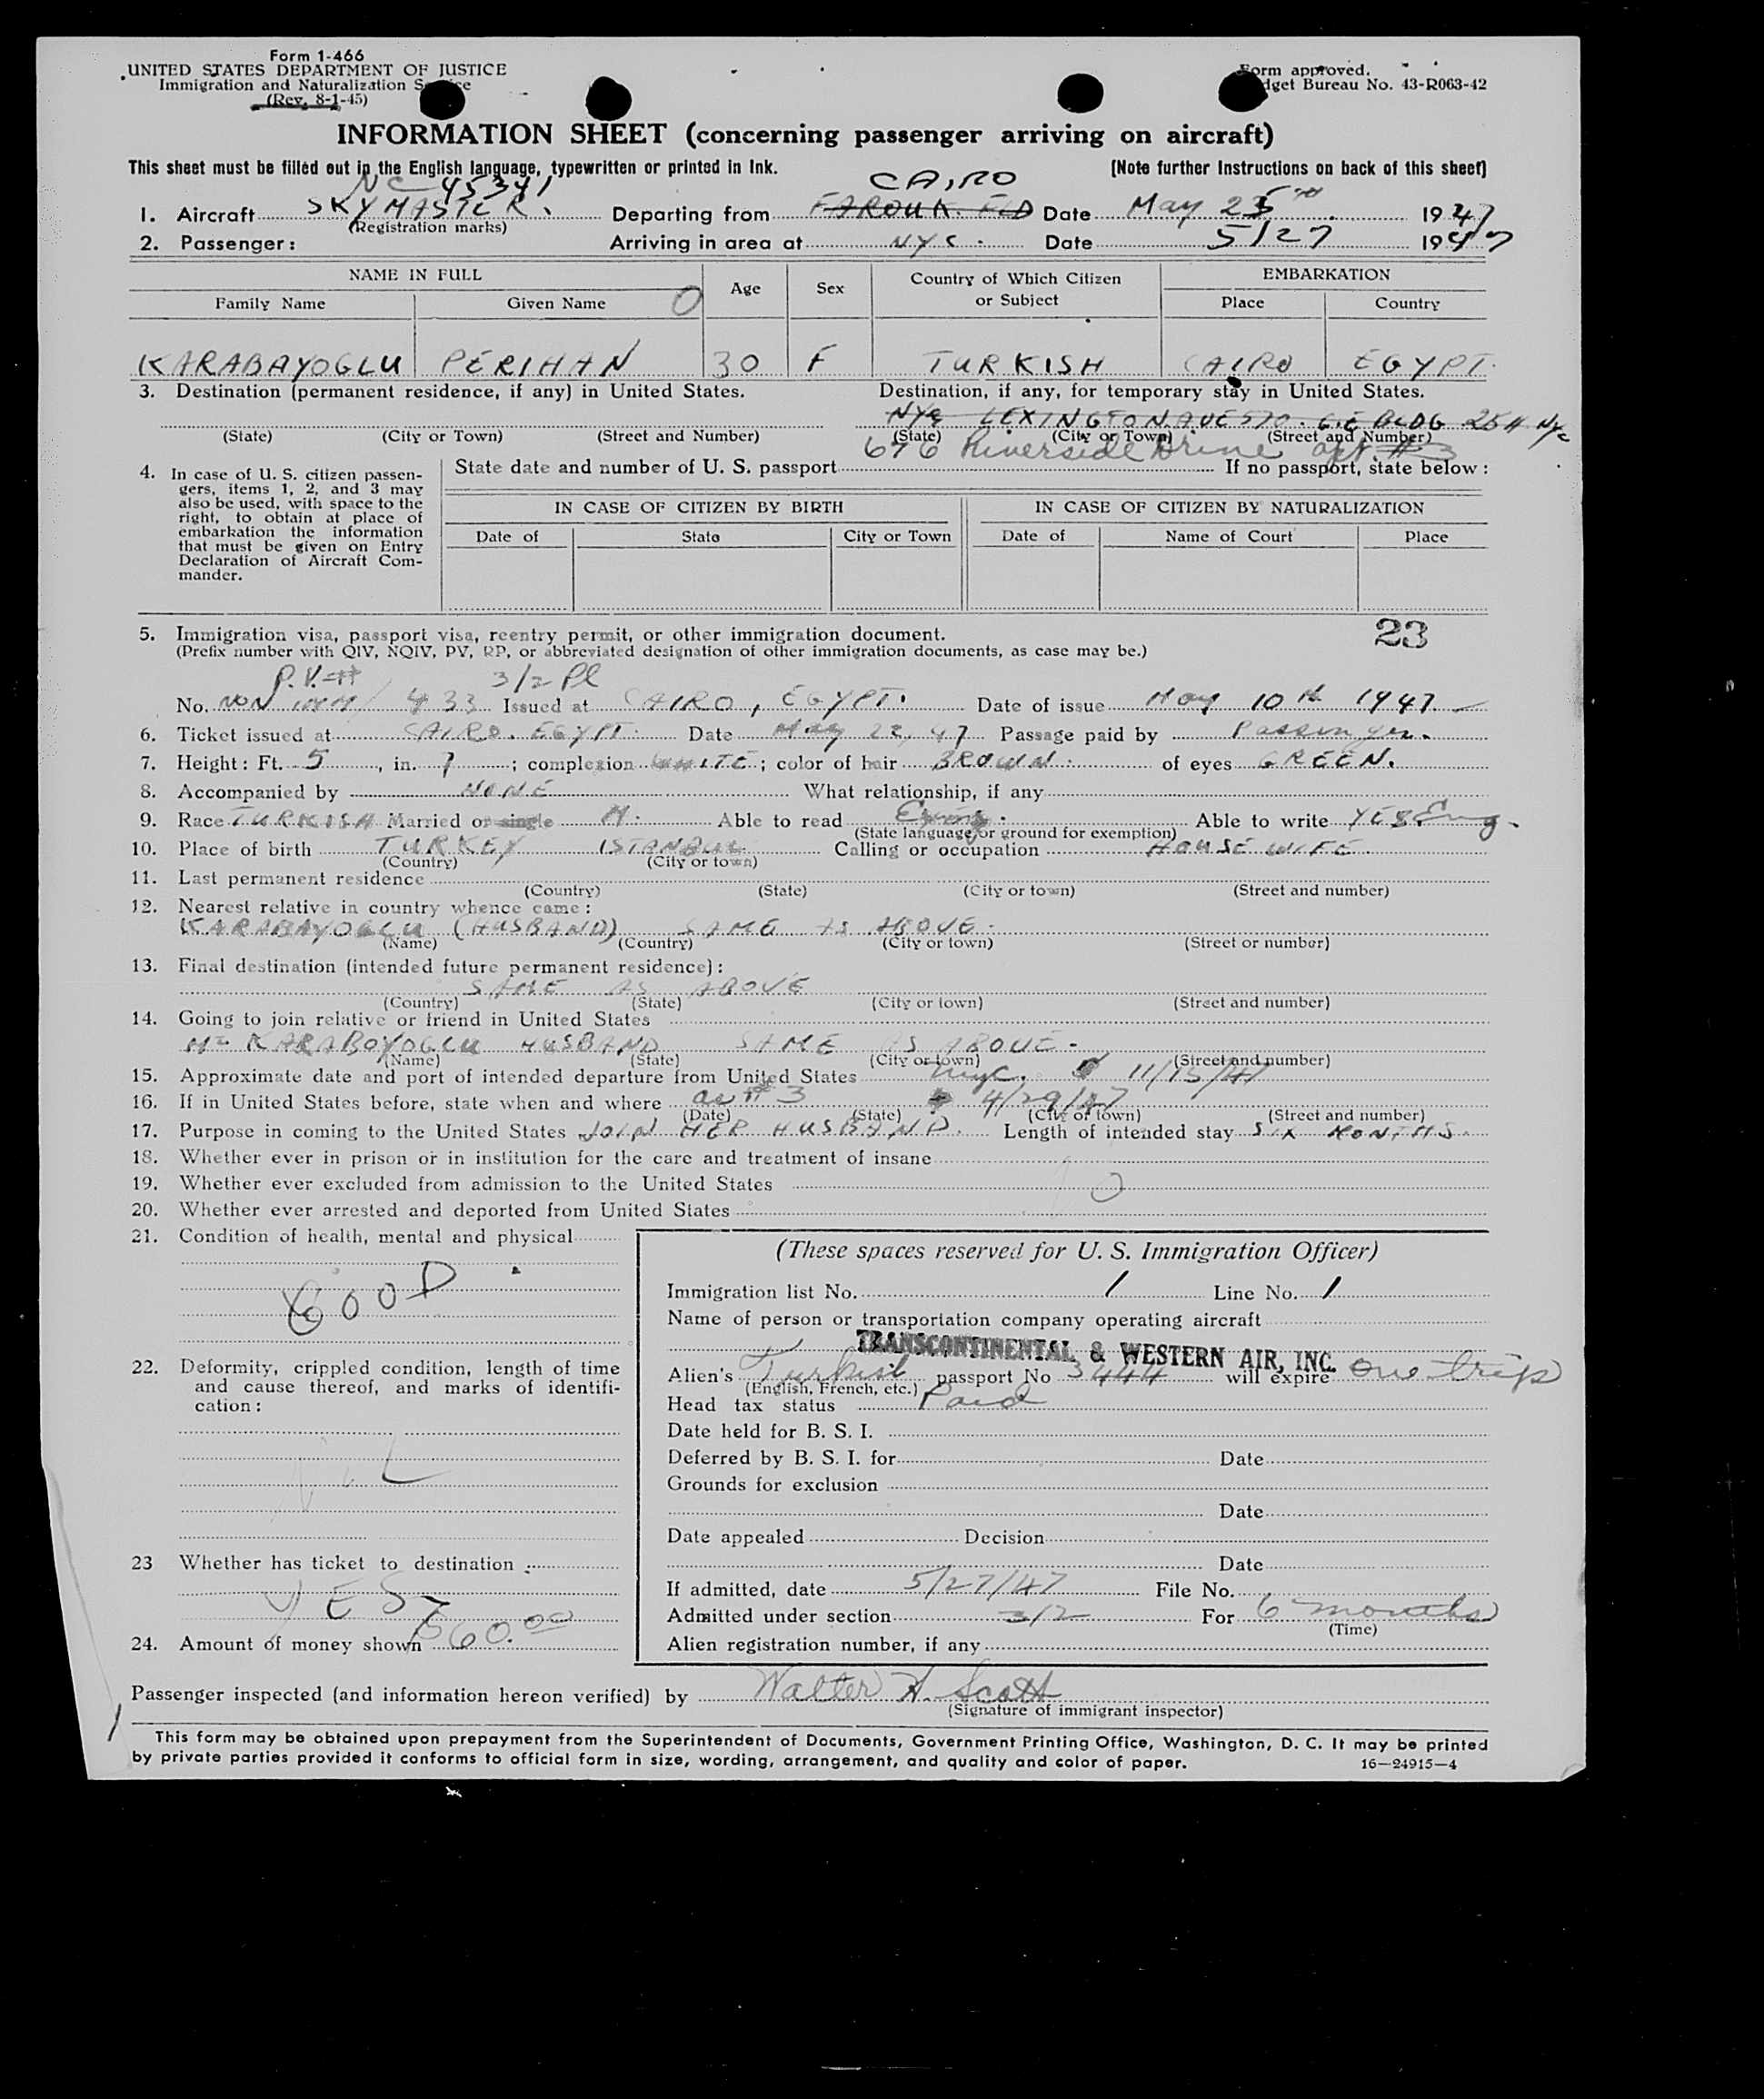 Form 1-466
UNITED STATES DEPARTMENT OF JUSTICE
Immigration and Naturalization S ce
(Rev. 8-1-45)
Form approved.
dget Bureau No. 43-R063-42
INFORMATION SHEET (concerning passenger arriving on aircraft)
This sheet must be filled out in the English language, typewritten or printed in Ink. (Note further Instructions on back of this sheet)
NC 45341 CAIRO
1. Aircraft SKYMASTER. Departing from FAROUK. FLD Date May 25th 1947
(Registration marks)
2. Passenger: Arriving in area at NYC. Date 5/27 1947
NAME IN FULL Age Sex Country of Which Citizen or Subject EMBARKATION
Family Name Given Name O Place Country
KARABAYOGLU PERIHAN 30 F TURKISH CAIRO EGYPT.
3. Destination (permanent residence, if any) in United States. Destination, if any, for temporary stay in United States.
NYC LEXINGTON AVE 570. G.E BLDG 25H NYC
(State) (City or Town) (Street and Number) (State) (City or Town) (Street and Number)
676 Riverside Drive apt. # 3
4. In case of U. S. citizen passengers, items 1, 2, and 3 may also be used, with space to the right, to obtain at place of embarkation the information that must be given on Entry Declaration of Aircraft Commander.
State date and number of U. S. passport If no passport, state below:
IN CASE OF CITIZEN BY BIRTH IN CASE OF CITIZEN BY NATURALIZATION
Date of State City or Town Date of Name of Court Place
23
5. Immigration visa, passport visa, reentry permit, or other immigration document.
(Prefix number with QIV, NQIV, PV, RP, or abbreviated designation of other immigration documents, as case may be.)
P.V.# 3/2 Pl
No. NON IMM/ 433 Issued at CAIRO, EGYPT. Date of issue May 10th 1947
6. Ticket issued at CAIRO. EGYPT. Date May 22, 47 Passage paid by Passenger.
7. Height: Ft. 5, in. 7; complexion WHITE; color of hair BROWN. of eyes GREEN.
8. Accompanied by NONE What relationship, if any
9. Race TURKISH Married or single M. Able to read Eng. Able to write YES Eng.
(State language or ground for exemption)
10. Place of birth TURKEY ISTANBUL Calling or occupation HOUSE WIFE
(Country) (City or town)
11. Last permanent residence
(Country) (State) (City or town) (Street and number)
12. Nearest relative in country whence came:
KARABAYOGLU (HUSBAND) SAME AS ABOVE.
(Name) (Country) (City or town) (Street or number)
13. Final destination (intended future permanent residence):
SAME AS ABOVE
(Country) (State) (City or town) (Street and number)
14. Going to join relative or friend in United States
Mr KARABOYOGLU HUSBAND SAME AS ABOVE.
(Name) (State) (City or town) (Street and number)
15. Approximate date and port of intended departure from United States nyc. 11/15/47
16. If in United States before, state when and where as # 3 4/29/47
(Date) (State) (City or town) (Street and number)
17. Purpose in coming to the United States JOIN HER HUSBAND. Length of intended stay SIX MONTHS.
18. Whether ever in prison or in institution for the care and treatment of insane
19. Whether ever excluded from admission to the United States
20. Whether ever arrested and deported from United States
21. Condition of health, mental and physical
GOOD
22. Deformity, crippled condition, length of time and cause thereof, and marks of identification:
NiL
23 Whether has ticket to destination:
YES
24. Amount of money shown $60.00
(These spaces reserved for U. S. Immigration Officer)
Immigration list No. 1 Line No. 1
Name of person or transportation company operating aircraft
TRANSCONTINENTAL & WESTERN AIR, INC.
Alien's Turkish passport No 3444 will expire one trip
(English, French, etc.)
Head tax status Paid
Date held for B. S. I.
Deferred by B. S. I. for Date
Grounds for exclusion
Date
Date appealed Decision
Date
If admitted, date 5/27/47 File No.
Admitted under section 3/2 For 6 months
(Time)
Alien registration number, if any
Passenger inspected (and information hereon verified) by Walter H. Scott
(Signature of immigrant inspector)
This form may be obtained upon prepayment from the Superintendent of Documents, Government Printing Office, Washington, D. C. It may be printed
by private parties provided it conforms to official form in size, wording, arrangement, and quality and color of paper. 16—24915—4